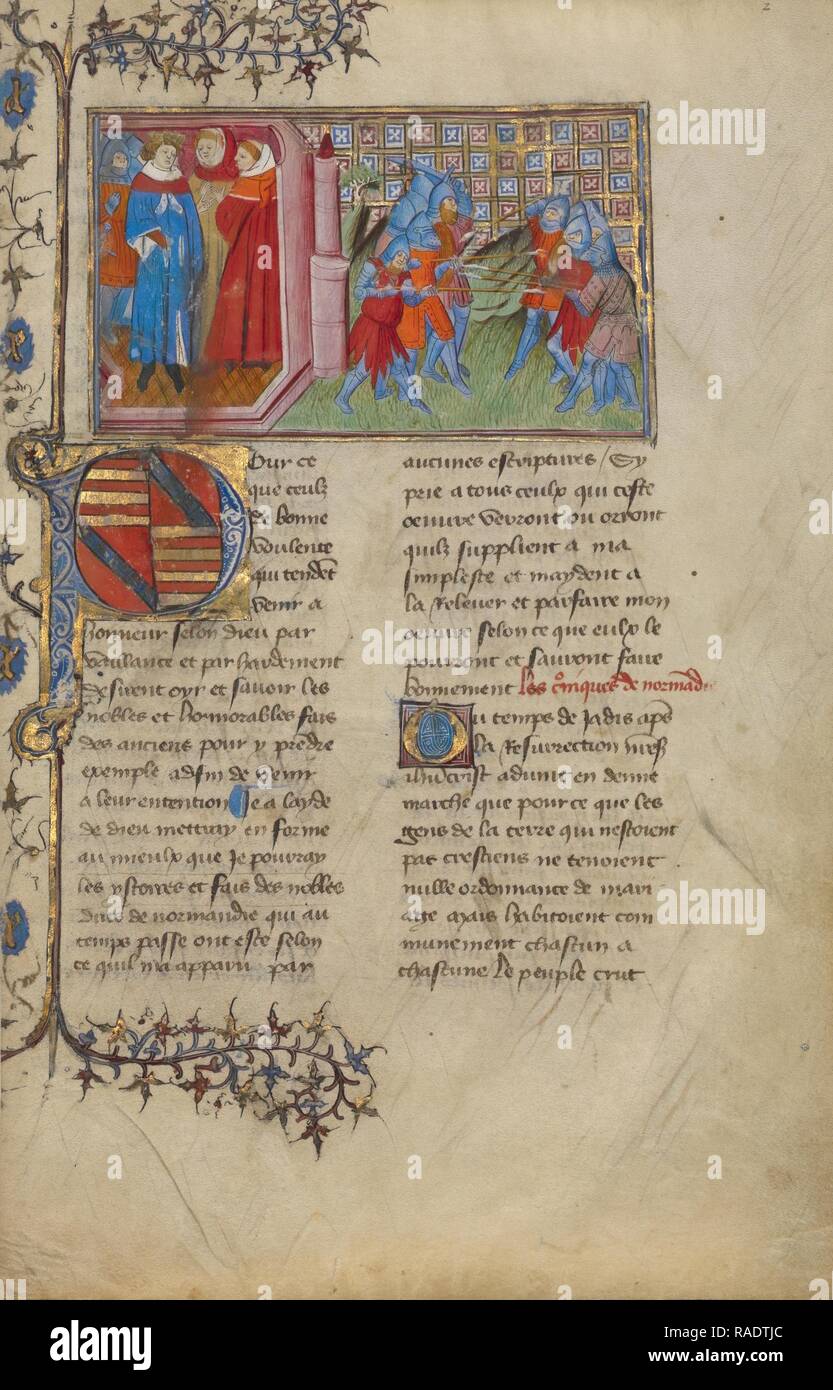 2
Pour ce
que ceulz
de bonne
voulente
qui tendēt
venir a
honneur selon dieu par
vaillance et par hardement
desirent oyr et savoir les
nobles et honnorables fais
des anciens pour y prēdre
exemple adfin de venir
a leur entention Je a layde
de dieu mettray en forme
au mieulx que Je pourray
les ystoires et fais des nobles
ducs de normandie qui au
temps passe ont este selon
ce quil ma apparu par
aucunes escriptures / Sy
prie a tous ceulx qui ceste
oeuvre verront ou orront
quilz supplient a ma
simplesse et maydent a
la relever et parfaire mon
oeuvre selon ce que eulx le
pourront et sauront faire
bonnement les cōniques de normādie
Ou temps de Jadis apēs
la Resurrection
advint en denne
marche que pour ce que les
gens de la terre qui nestoient
pas crestiens ne tenoient
nulle ordonnance de mari
age mais habitoient com
munement chascun a
chascune Le peuple crut
alamy stock photo
RADTJC
www.alamy.com